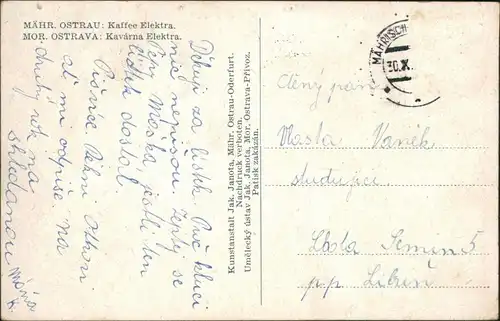 MÄHR. OSTRAU: Kaffee Elektra.
MOR. OSTRAVA: Kavárna Elektra.
Děkuji za lístek. Proč kluci
nic nepíšou. Zeptej se
Pepy Mocka, jestli ten
lístek dostal.
Pišnice Sehni
ať mi odpíše. na
druhý rok na
shledanou
Kunstanstalt Jak. Janota, Mähr. Ostrau-Oderfurt.
Nachdruck verboten.
Umělecký ústav Jak. Janota, Mor. Ostrava-Přívoz.
Patisk zakázán.
MÄHRISCH
30.X.
Ctěný pán
Vlasta Vaněk
studující
Lhota Semín 5
p.p. Libuň